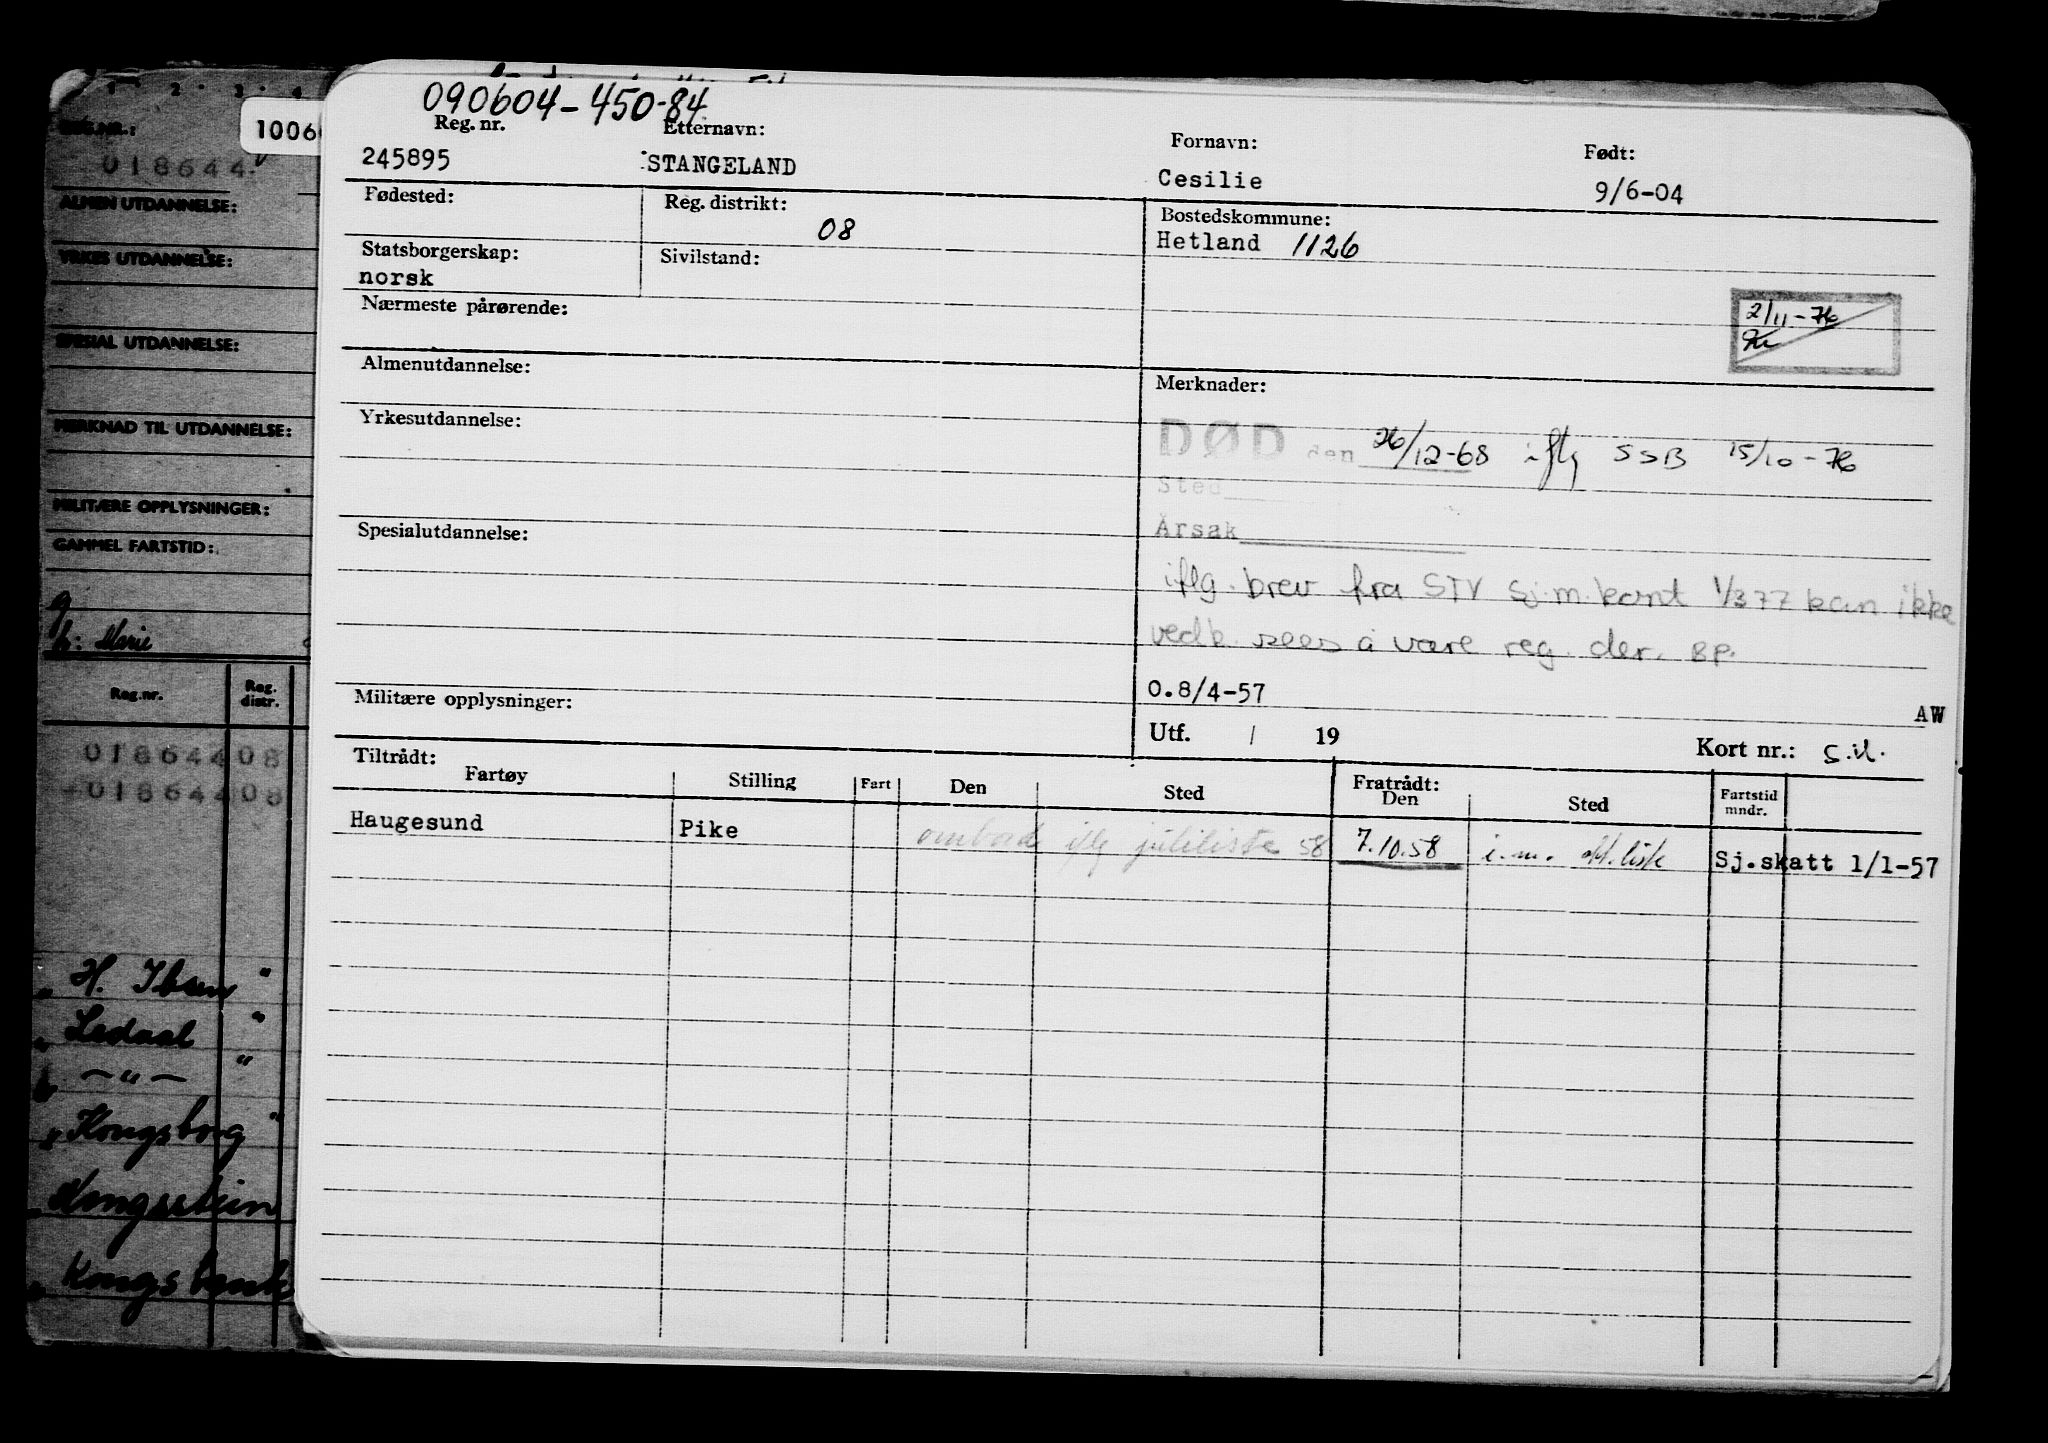 090604-450-84
Reg. nr. Etternavn: Fornavn: Født:
245895 STANGELAND Cesilie 9/6-04
Fødested: Reg. distrikt: 08 Bostedskommune:
Hetland 1126
Statsborgerskap: Sivilstand:
norsk
Nærmeste pårørende:
2/11-76
Almenutdannelse:
Merknader:
Yrkesutdannelse:
DØD den 26/12-68 iflg SSB 15/10-76
Sted
Årsak
Spesialutdannelse:
iflg. brev fra STV Sj.m.kont 1/3 77 kan ikke
vedk. sees å være reg. der. BP.
O.8/4-57
AW
Militære opplysninger:
Utf. / 19 Kort nr.: S.M.
Tiltrådt: Fratrådt:
Fartøy Stilling Fart Den Sted Den Sted Fartstid mndr.
Haugesund Pike ombord iflg juliliste 58 7.10.58 i.m. okt.liste Sj.skatt 1/1-57
1 2 3 4
REG.NR.: 1006
018644
ALMEN UTDANNELSE:
YRKES UTDANNELSE:
SPESIAL UTDANNELSE:
MERKNAD TIL UTDANNELSE:
MILITÆRE OPPLYSNINGER:
GAMMEL FARTSTID:
g
h: Marie
Reg.nr. Reg. distr.
018644 08
018644 08
" H. Ibsen "
" Ledaal "
" —"— "
" Kongsborg "
" Kongsstein